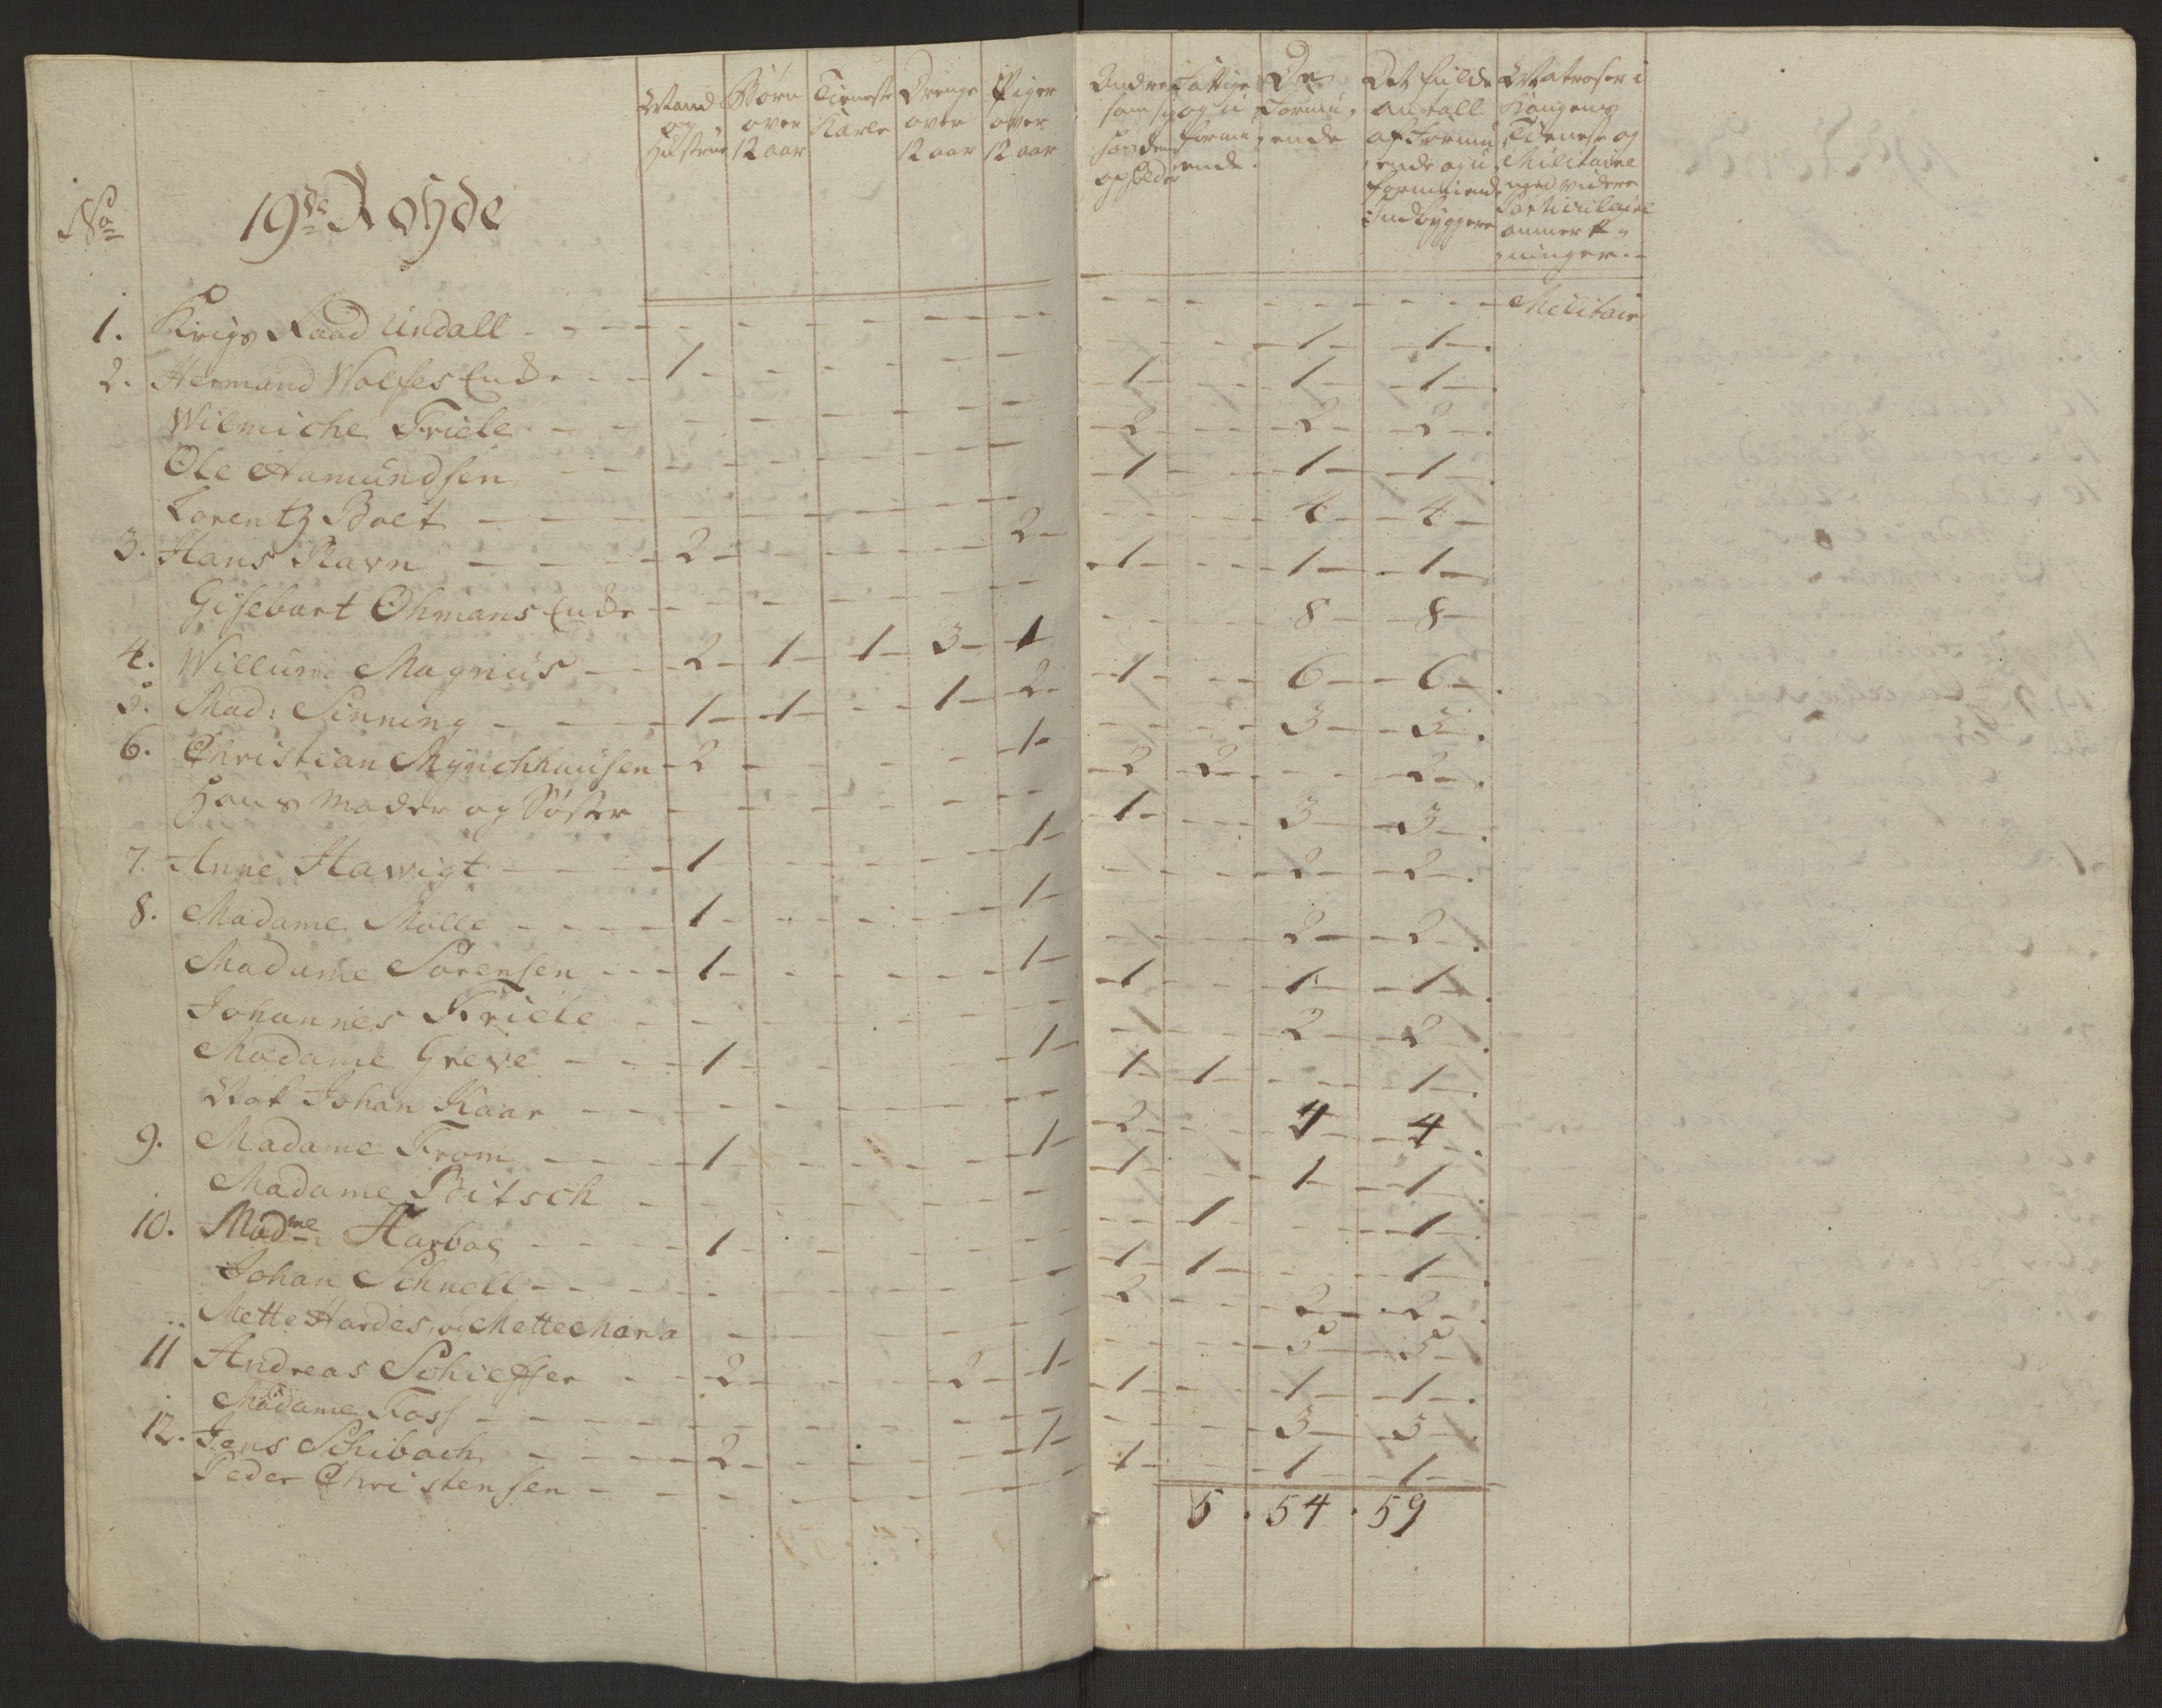 No
19de Rohde
Mand og Hustrue
Børn over 12 aar
Tieneste Karle
Drenge over 12 aar
Piger over 12 aar
Andre som sig hos dem opholder
Fattige og u formuende.
De Formuende
Det fulde Antall af Formuende og u formuende Indbyggere
Matroser i Kongens Tieneste og Militaire med videre Particulaire anmerkninger.
1. Krigs Raad Undall - - - - - - - - - - - Militair
2. Hermand Wolfes Enke - - 1 - - - - - - 1 - 1 -
Wilmiche Friele - - - - - - - 1 - - 1 - 1 -
Ole Aamundsen - - - - - - - 2 - - 2 - 2 -
Lorentz Bolt - - - - - - - 1 - - 1 - 1 -
3. Hans Ravn - - - 2 - - - - 2 - - - 4 - 4 -
Gisebart Ohmans Enke - - - - - - 1 - - 1 - 1 -
4. Willum Magnus - 2 - 1 - 1 - 3 - 1 - - - 8 - 8 -
5. Mad: Sinning - - - 1 - 1 - - 1 - 2 - 1 - - 6 - 6 -
6. Christian Mynchhausen - 2 - - - - 1 - - - 3 - 3 -
Hans Moder og Søster - - - - - - 2 - 2 - - - 2 -
7. Anne Hawigt - - - 1 - - - - 1 - 1 - - 3 - 3 -
8. Madame Molle - - - 1 - - - - 1 - - - 2 - 2 -
Madame Sørensen - - - 1 - - - - 1 - - - 2 - 2 -
Johannes Friele - - - - - - 1 - - 1 - 1 -
Madame Greve - - - 1 - - - - 1 - - - 2 - 2 -
Mat Johan Kaar - - - - - - 1 - 1 - - - 1 -
9. Madame From - - - 1 - - - - 1 - 2 - - 4 - 4 -
Madame Bitsch - - - - - - 1 - - 1 - 1 -
10. Madme Harboe - - - 1 - - - - - - 1 - - - 1 -
Johan Schnell - - - - - - 1 - 1 - - - 1 -
Mette Hardes, og Mette Maria - - - - - 2 - - 2 - 2 -
11 Andreas Schieffer - - 2 - - - 2 - 1 - - - 5 - 5 -
Madame Foss - - - - - - 1 - - 1 - 1 -
12. Jens Schibach - - - 2 - - - - 1 - - - 3 - 3 -
Peder Christensen - - - - - - 1 - - 1 - 1 -
5 . 54 . 59